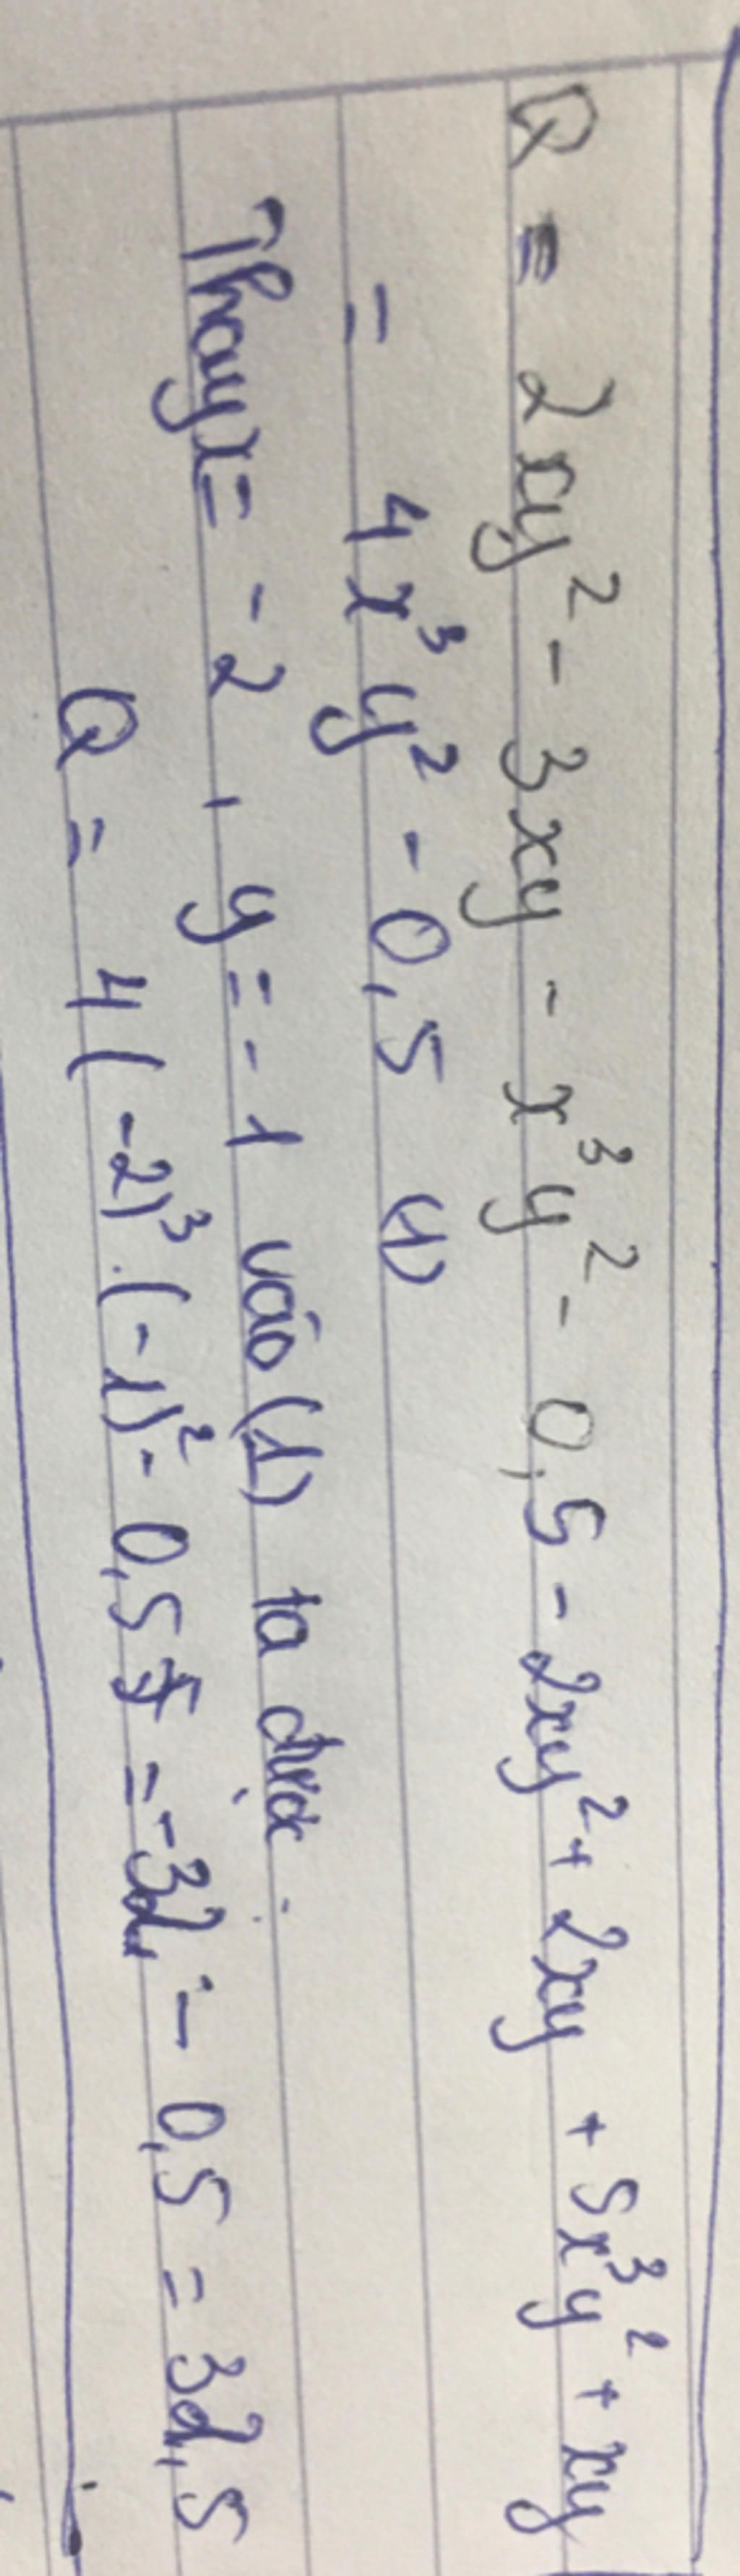 Q = 2xy² - 3xy - x³y² - 0,5 - 2xy² + 2xy + 5x³y² + xy
= 4x³y² - 0,5 (1)
Thay x = -2, y = -1 vào (1) ta được:
Q = 4(-2)³.(-1)² - 0,5 = -32 - 0,5 = 32,5